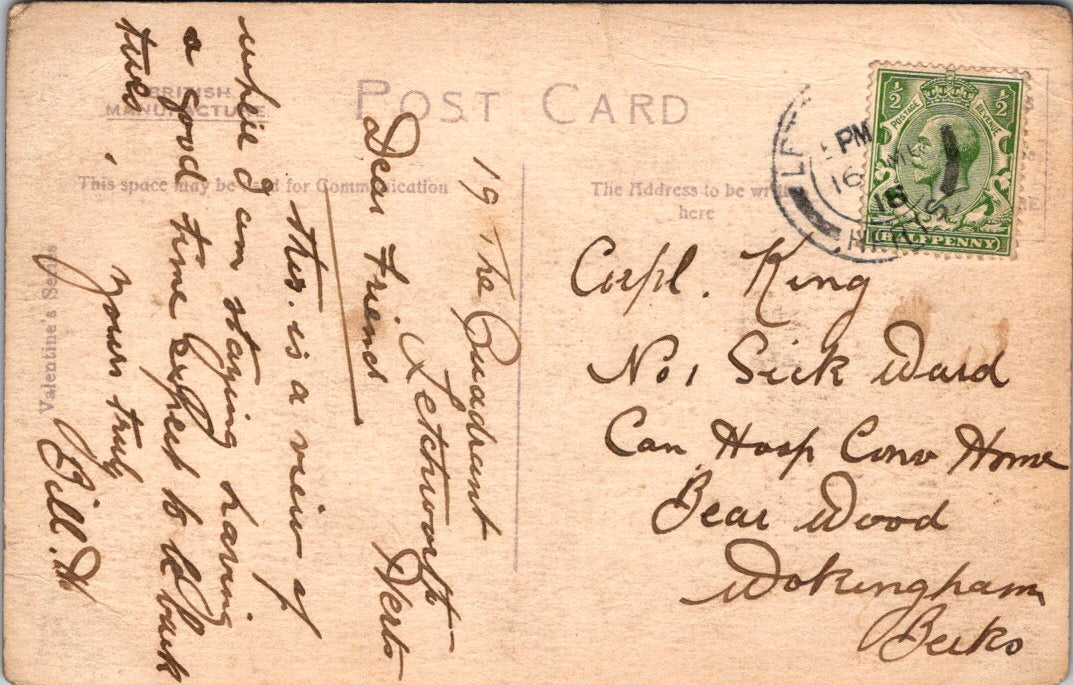 BRITISH
MANUFACTURE
POST CARD
This space may be used for Communication
The Address to be written
here
Valentine's Series
½ ½
POSTAGE REVENUE
HALFPENNY
PM
16
18
HERTS
19 The Quadrant
Letchworth
Herts
Dear Friend
this. is a view of
where I am staying having
a good time expect to be back
tues
yours truly
Bill. H
Corpl. King
No 1 Sick Ward
Can Hosp Conv Home
Bear Wood
Wokingham
Berks